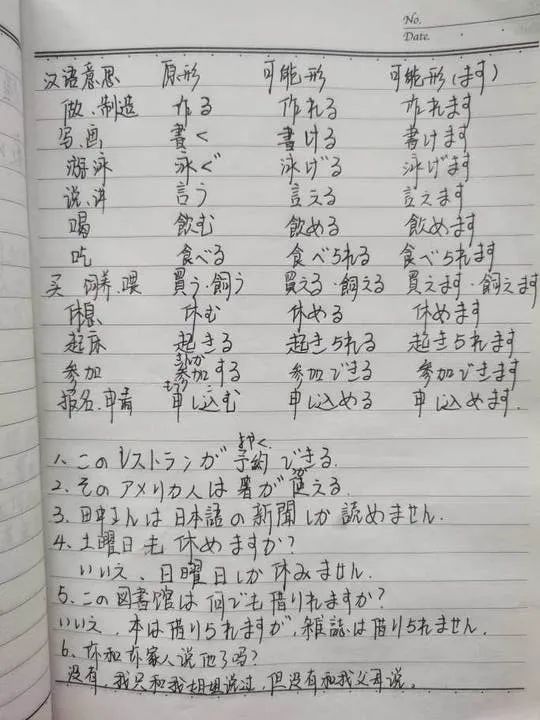 No.
Date.
汉语意思 原形 可能形 可能形(ます)
做、制造 作る 作れる 作れます
写、画 書く 書ける 書けます
游泳 泳ぐ 泳げる 泳げます
说、讲 言う 言える 言えます
喝 飲む 飲める 飲めます
吃 食べる 食べられる 食べられます
买 饲养、喂 買う・飼う 買える・飼える 買えます・飼えます
休息 休む 休める 休めます
起床 起きる 起きられる 起きられます
さんか
参加 参加する 参加できる 参加できます
もうしこ
报名、申请 申し込む 申し込める 申し込めます.
よやく
1、このレストランが予約できる.
2、そのアメリカ人は箸が使える.
3、田中さんは日本語の新聞しか読めません.
4、土曜日も休めますか?
いいえ、日曜日しか休みません.
5、この図書館は何でも借りれますか?
いいえ、本は借りられますが、雑誌は借りられません.
6、你和你家人说他了吗?
没有,我只和我姐姐说过,但没有和我父母说。